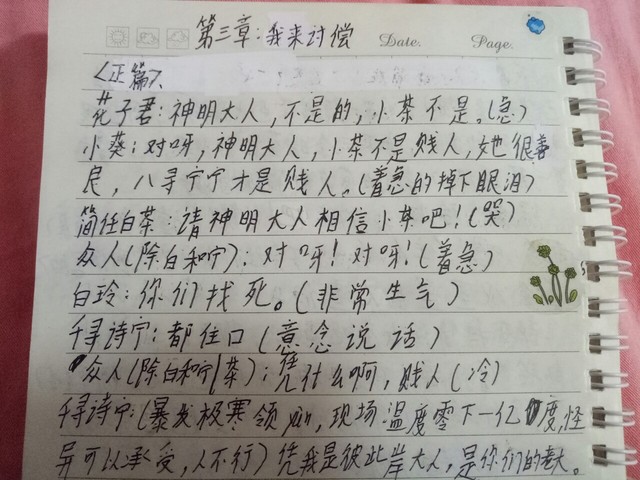 第三章:我来讨偿 Date. Page.
〈正篇〉
花子君:神明大人,不是的,小茶不是。(急)
小葵:对呀,神明大人,小茶不是贱人,她很善
良,八寻宁宁才是贱人。(着急的掉下眼泪)
简任白茶:请神明大人相信小茶吧!(哭)
众人(除白和宁):对呀!对呀!(着急)
白玲:你们找死。(非常生气)
千寻诗宁:都住口(意念说话)
众人(除白和宁/茶):凭什么啊,贱人(冷)
千寻诗宁:(暴发极寒领yin,现场温度零下一亿度,怪
异可以承受,人不行)凭我是彼岸大人,是你们的老大。